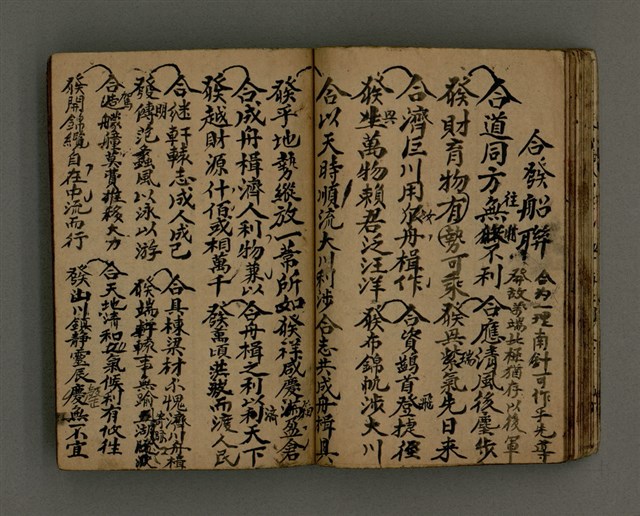 合發船聯
合為一理南針可作千先導
發啟芳端北極猶存以後軍
合道同方無往不利
發財育物有勢可乘
合應清風後塵步
發呈紫氣先日來
合濟巨川用作舟楫
發生萬物賴君泛汪洋
合資鷁首登捷徑
發布錦帆涉大川
合以天時順流大川利涉
合志共成舟楫具
發乎地勢縱放一葦所如
發祥咸慶滿盈倉
合成舟楫濟人利物兼以
合舟楫之利以利天下
發越財源什佰或相萬千
發萬頃茫然而渡人民
合繼軒轅志成人成己
合具棟梁材不愧濟川舟楫
發傳范蠡風以泳以游
發端軒轅事無踰
合造艨艟莫費推移大力
合天地清和氣候利有攸往
發開錦纜自在中流而行
發山川鎮靜靈辰慶無不宜